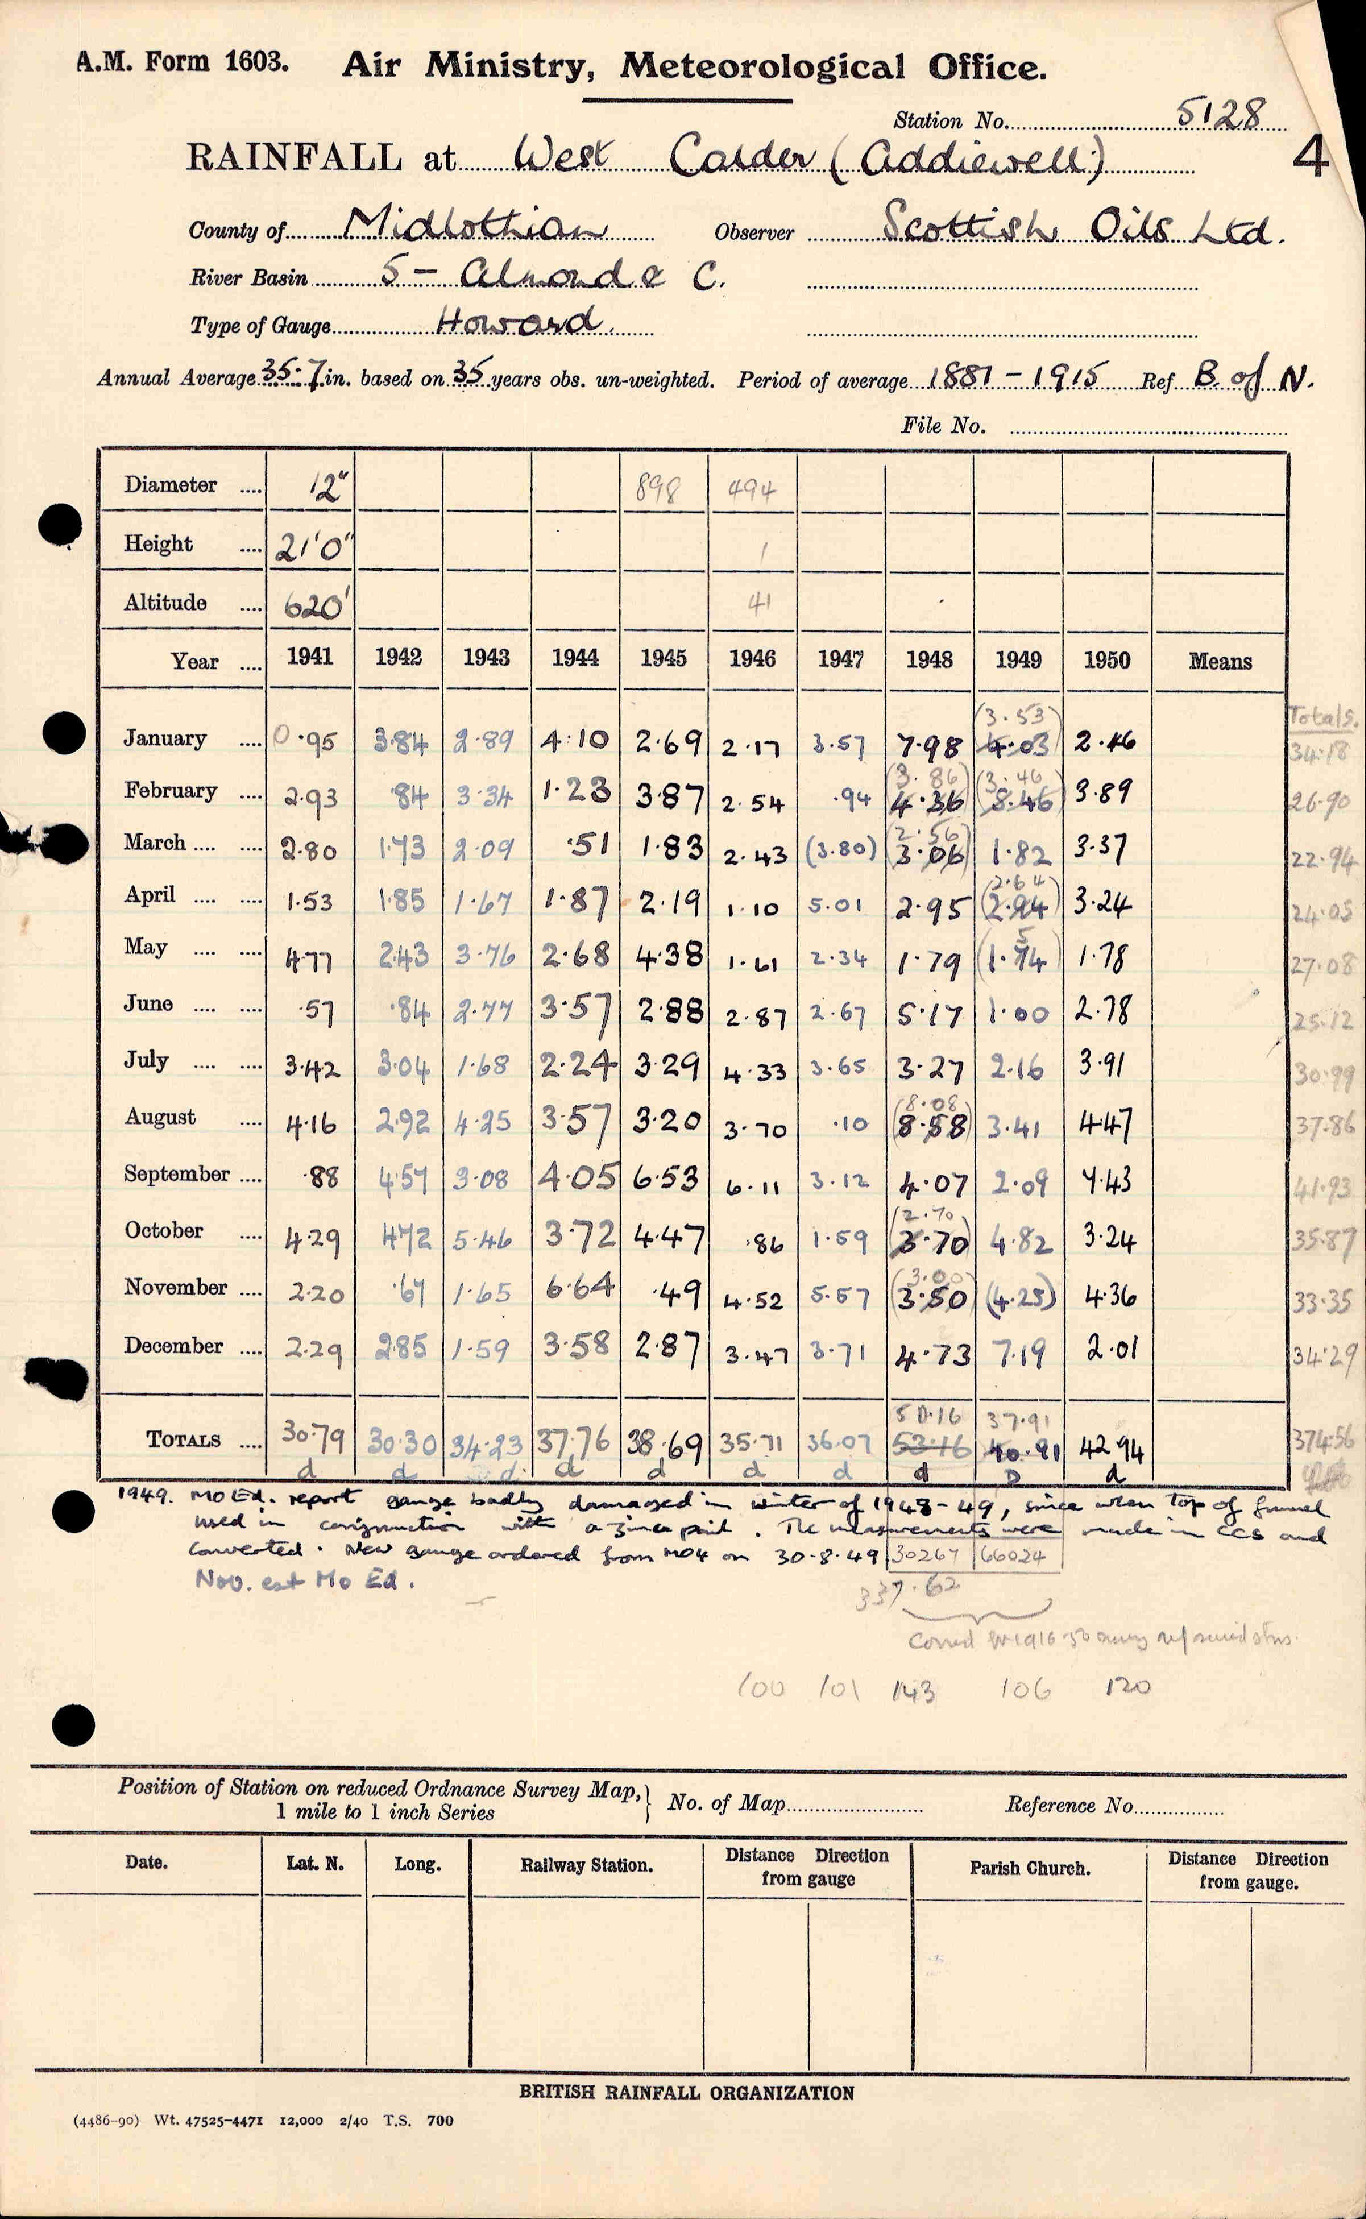 A.M. Form 1603. Air Ministry, Meteorological Office.
Station No. 5128
RAINFALL at West Calder (Addiewell) 4
County of Midlothian Observer Scottish Oils Ltd.
River Basin 5 - Almond & C.
Type of Gauge Howard.
Annual Average 35.7 in. based on 35 years obs. un-weighted. Period of average 1881-1915 Ref B of N.
File No.
Diameter .... 12" 898 494
Height .... 21'0" 1
Altitude .... 620' 41
Year .... 1941 1942 1943 1944 1945 1946 1947 1948 1949 1950 Means
(3.53) Totals.
January .... 0.95 3.84 2.89 4.10 2.69 2.17 3.57 7.98 4.03 2.46 34.18
(3.86) (3.46)
February .... 2.93 .84 3.34 1.23 3.87 2.54 .94 4.36 3.46 3.89 26.90
(2.56)
March .... .... 2.80 1.73 2.09 .51 1.83 2.43 (3.80) 3.06 1.82 3.37 22.94
(2.64)
April .... .... 1.53 1.85 1.67 1.87 2.19 1.10 5.01 2.95 (2.94) 3.24 24.05
5
May .... .... 4.77 2.43 3.76 2.68 4.38 1.61 2.34 1.79 (1.74) 1.78 27.08
June .... .... .57 .84 2.77 3.57 2.88 2.87 2.67 5.17 1.00 2.78 25.12
July .... .... 3.42 3.04 1.68 2.24 3.29 4.33 3.65 3.27 2.16 3.91 30.99
(8.08)
August .... 4.16 2.92 4.25 3.57 3.20 3.70 .10 8.58 3.41 4.47 37.86
September .... .88 4.57 3.08 4.05 6.53 6.11 3.12 4.07 2.09 7.43 41.93
(2.70)
October .... 4.29 4.72 5.46 3.72 4.47 .86 1.59 3.70 4.82 3.24 35.87
(3.00)
November .... 2.20 .67 1.65 6.64 .49 4.52 5.57 3.50 (4.25) 4.36 33.35
December .... 2.29 2.85 1.59 3.58 2.87 3.47 3.71 4.73 7.19 2.01 34.29
50.16 37.91
TOTALS .... 30.79 30.30 34.23 37.76 38.69 35.71 36.07 53.16 40.91 42.94 374.56
d d d d d d d d D d
1949. MO Ed. report gauge badly damaged in winter of 1948-49, since when top of funnel
used in conjunction with a zinc pail. The measurements were made in CCS and
converted. New gauge ordered from MO4 on 30.8.49 30267 66024
Nov. est Mo Ed.
337.62
100 101 143 106 120
Position of Station on reduced Ordnance Survey Map, 1 mile to 1 inch Series } No. of Map Reference No.
Date. Lat. N. Long. Railway Station. Distance Direction from gauge Parish Church. Distance Direction from gauge.
BRITISH RAINFALL ORGANIZATION
(4486-90) Wt. 47525-4471 12,000 2/40 T.S. 700